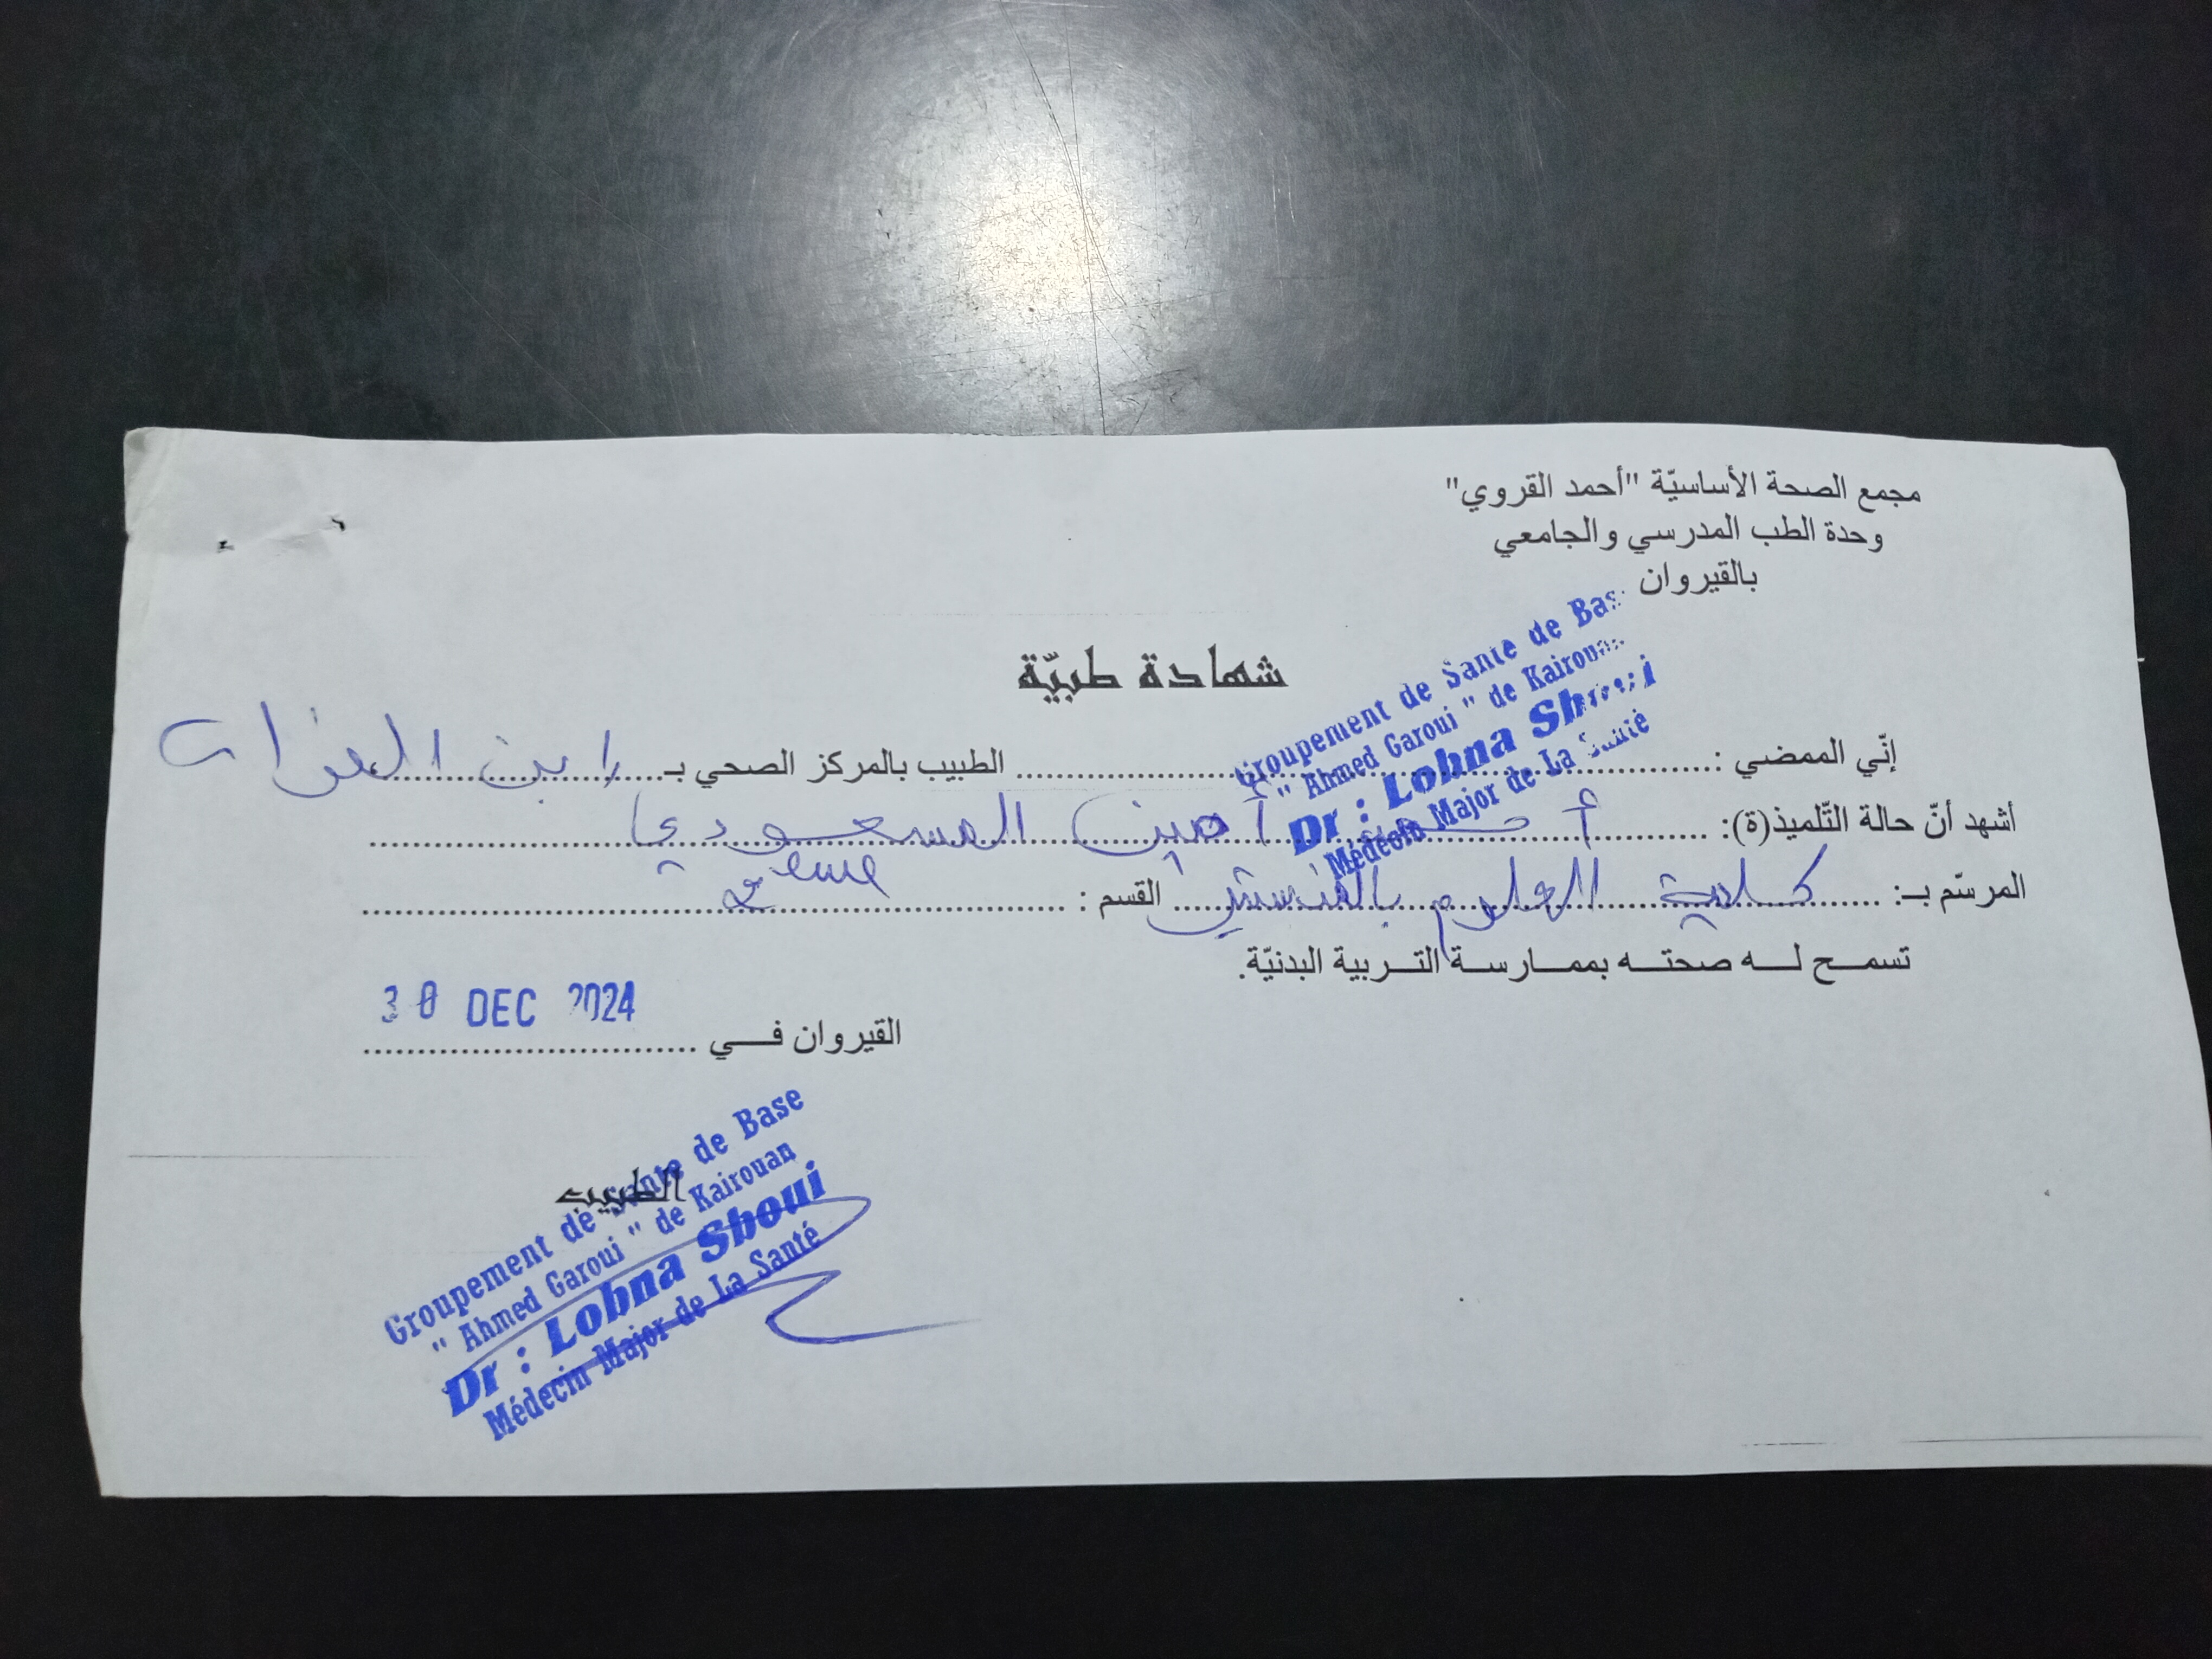 مجمع الصحة الأساسيّة "أحمد القروي"
وحدة الطب المدرسي والجامعي
بالقيروان
شهادة طبيّة
Groupement de Sante de Base
" Ahmed Garoui " de Kairouan
Dr : Lobna Sboui
Médecin Major de La Santé
إنّي الممضي : الطبيب بالمركز الصحي بـ ابن الفرات
أشهد أنّ حالة التّلميذ(ة): أمين المسعودي
المرسّم بـ: كلية العلوم بالمنستير القسم :
تسمح له صحته بممارسة التربية البدنيّة.
30 DEC 2024
القيروان في
الطبيب
Groupement de Sante de Base
" Ahmed Garoui " de Kairouan
Dr : Lobna Sboui
Médecin Major de La Santé